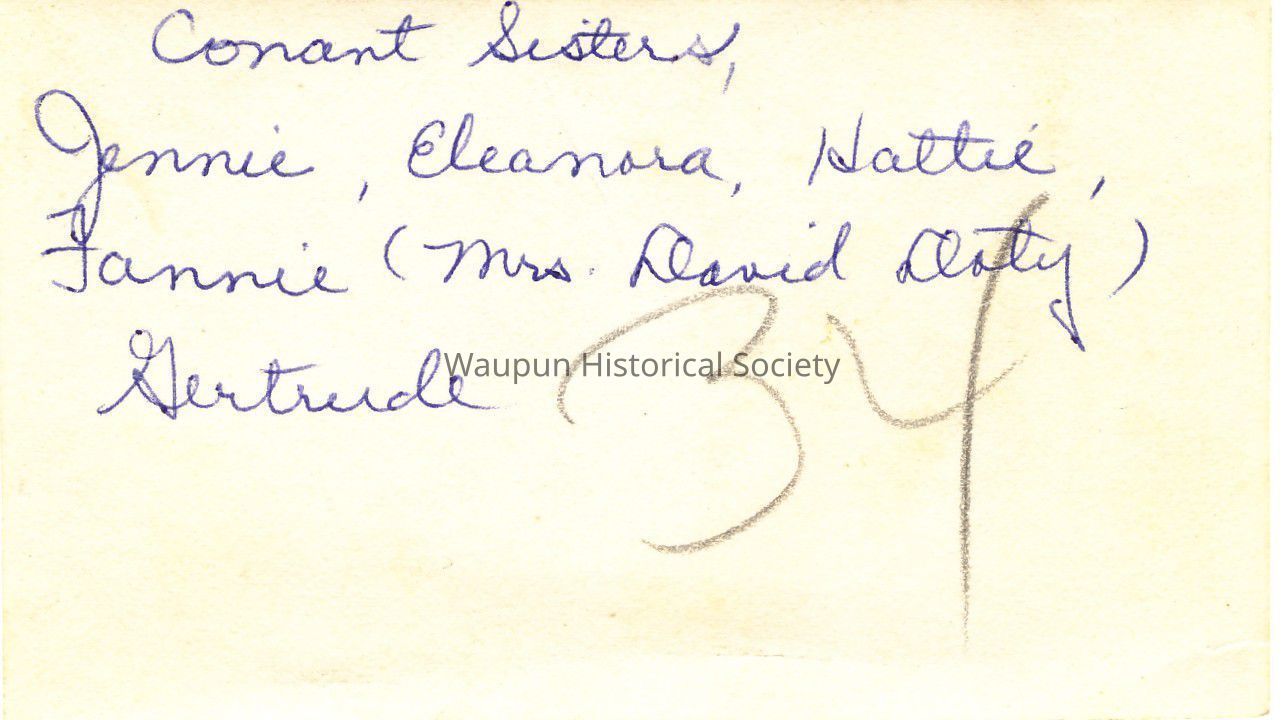 Conant Sisters,
Jennie, Eleanora, Hattie,
Fannie (Mrs. David Doty)
Gertrude
Waupun Historical Society
34